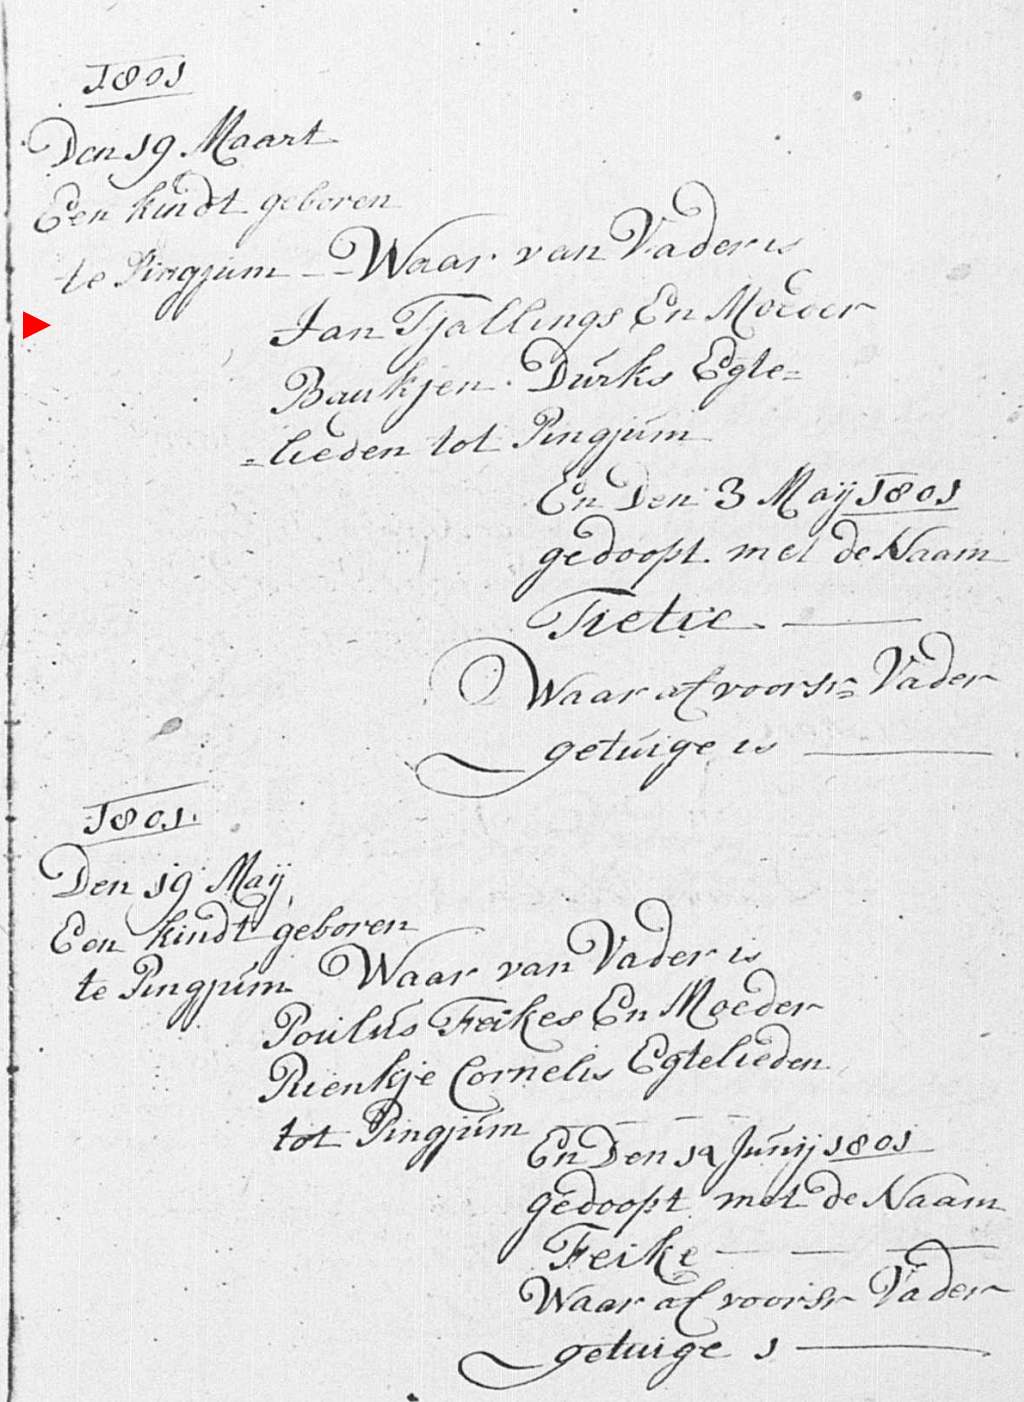 1801
Den 19 Maart
Een kindt geboren
te Pingjum - Waar van Vader is
Jan Tjallings En Moeder
Baukjen Durks Egte=
=lieden tot Pingjum
En Den 3 Maij 1801
gedoopt met de Naam
Tietie
Waar af voorsr= Vader
getuige is
1801
Den 19 Maij
Een kindt geboren
te Pingjum Waar van Vader is
Poulus Feikes En Moeder
Rienkje Cornelis Egtelieden
tot Pingjum
En Den Junij 1801
gedoopt met de Naam
Feike
Waar af voorsr Vader
getuige